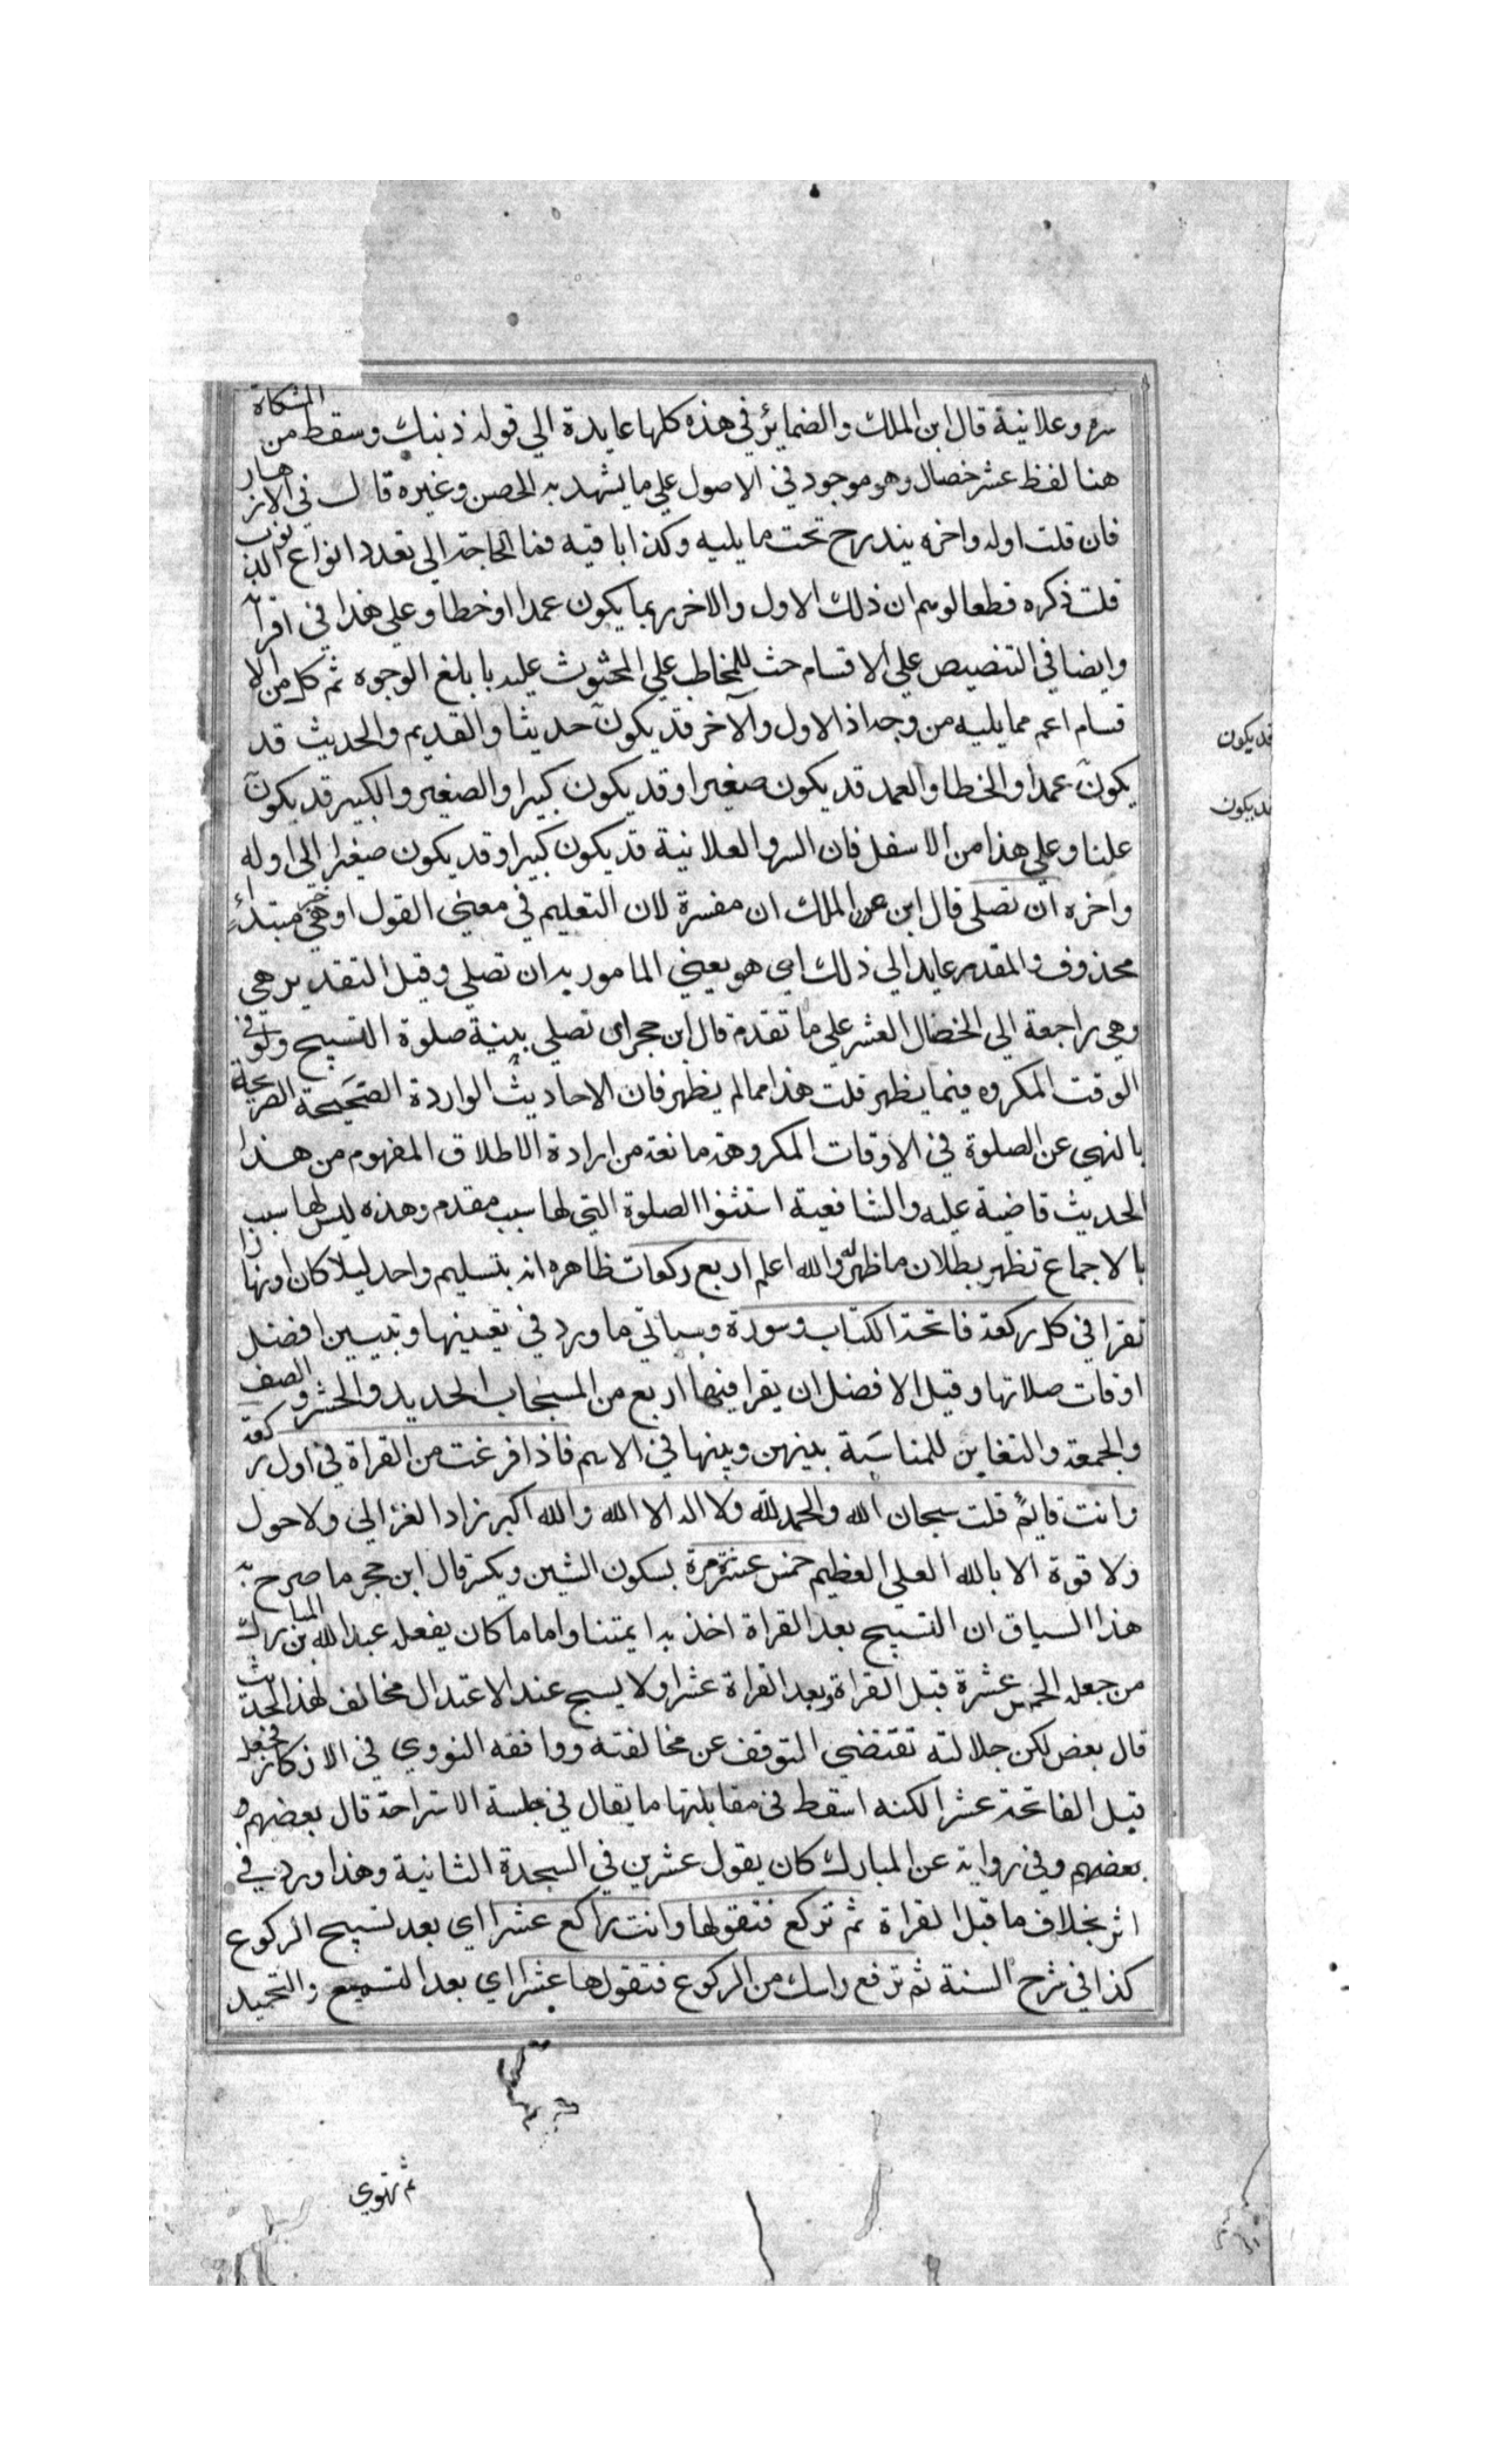 سره وعلانية قال ابن الملك والضمائر في هذه كلها عايدة الي قوله ذنبك وسقط من المشكاة
هنا لفظ عشر خصال وهو موجود في الاصول علي ما يشهد به الحصن وغيره قال في الازهار
فان قلت اوله واخره يندرج تحت ما يليه وكذا باقيه فما الحاجة الي تعدد انواع الذنوب
قلت ذكره قطعا لوهم ان ذلك الاول والاخر ربما يكون عمدا او خطا وعلي هذا في اقرانه
وايضا في التنصيص علي الاقسام حث للمخاطب علي المحثوث عليه بابلغ الوجوه ثم كل من الا
قسام اعم مما يليه من وجه اذ الاول والآخر قد يكون حديثا والقديم والحديث قد
يكون عمدا والخطا والعمد قد يكون صغيرا وقد يكون كبيرا والصغير والكبير قد يكون
علنا وعلي هذا من الاسفل فان السر والعلانية قد يكون كبيرا وقد يكون صغيرا الي اوله
وآخره ان تصلي قال ابن الملك ان مفسرة لان التعليم في معني القول او هي خبر مبتداء
محذوف والمقدر عايد الي ذلك اي هو يعني المامور به ان تصلي وقيل التقدير هي
وهي راجعة الي الخصال العشر علي ما تقدم قال ابن حجر اي تصلي بنية صلوة التسبيح ولو في
الوقت المكروه فيما يظهر قلت هذا مما لم يظهر فان الاحاديث الواردة الصحيحة الصريحة
بالنهي عن الصلوة في الاوقات المكروهة مانعة من ارادة الاطلاق المفهوم من هذا
الحديث قاضية عليه والشافعية استثنوا الصلوة التي لها سبب مقدم وهذه ليس لها سبب
بالاجماع تظهر بطلان ما ظهر له والله اعلم اربع ركعات ظاهره انه بتسليم واحد ليلا كان او نهارا
تقرا في كل ركعة فاتحة الكتاب وسورة وسياتي ما ورد في تعيينها وتبيين افضل
اوقات صلاتها وقيل الافضل ان يقرا فيها اربع من المسبحات الحديد والحشر والصف
والجمعة والتغابن للمناسبة بينهن وبينها في الاسم فاذا فرغت من القراة في اول ركعة
وانت قايم قلت سبحان الله والحمد لله ولا اله الا الله والله اكبر زاد الغزالي ولا حول
ولا قوة الا بالله العلي العظيم خمس عشرة مرة بسكون الشين ويكسر قال ابن حجر ما صرح به
هذا السياق ان التسبيح بعد القراة اخذ به ايمتنا واما ما كان يفعله عبد الله بن المبارك
من جعله الخمس عشرة قبل القراة وبعد القراة عشرا ولا يسبح عند الاعتدال مخالف لهذا الحديث
قال بعض لكن جلالته تقتضي التوقف عن مخالفته ووافقه النووي في الاذكار فجعل
قبل الفاتحة عشرا لكنه اسقط في مقابلتها ما يقال في جلسة الاستراحة قال بعضهم و
بعضهم وفي رواية عن المبارك كان يقول عشرين في السجدة الثانية وهذا ورد في
اثر بخلاف ما قبل القراة ثم تركع فتقولها وانت راكع عشرا اي بعد تسبيح الركوع
كذا في شرح السنة ثم ترفع راسك من الركوع فتقولها عشرا اي بعد التسميع والتحميد
قد يكون
قد يكون
ثم تهوي